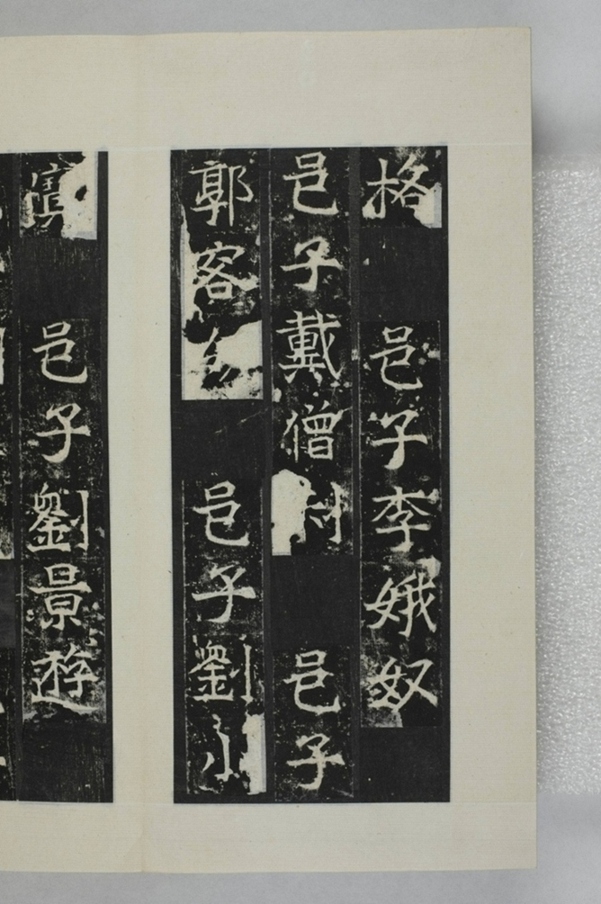 格 邑子李娥奴
邑子戴僧 邑子
郭客 邑子劉小
邑子劉景遊